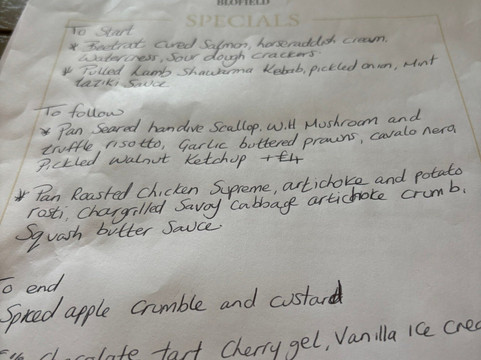 BLOFIELD
SPECIALS
To Start
* Beetroot Cured Salmon, horseraddish cream,
Watercress, Sour dough crackers.
* Pulled Lamb Shawarma Kebab, pickled onion, Mint
taziki Sauce
To follow
* Pan Seared handive Scallop, Wild Mushroom and
truffle risotto, Garlic buttered prawns, cavalo nero,
Pickled walnut Ketchup +£4
* Pan Roasted Chicken Supreme, artichoke and potato
rosti, Chargrilled Savoy cabbage artichoke crumb,
Squash butter sauce
To end
Spiced apple Crumble and custard
chocolate tart Cherry gel, Vanilla Ice